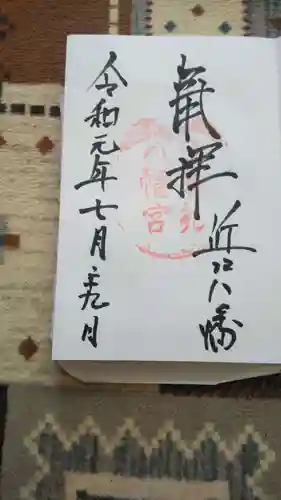 奉拝
近江八幡
八幡宮
令和元年七月廿九日